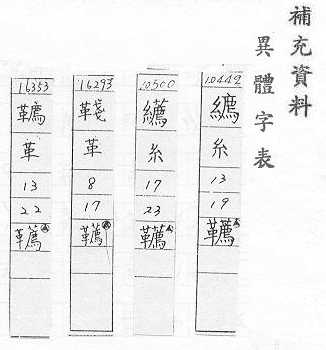 補充資料
異體字表
10449
糸
13
19
韉
10500
糸
17
23
韉
16293
䩞
革
8
17
韉
16353
韀
革
13
22
韉